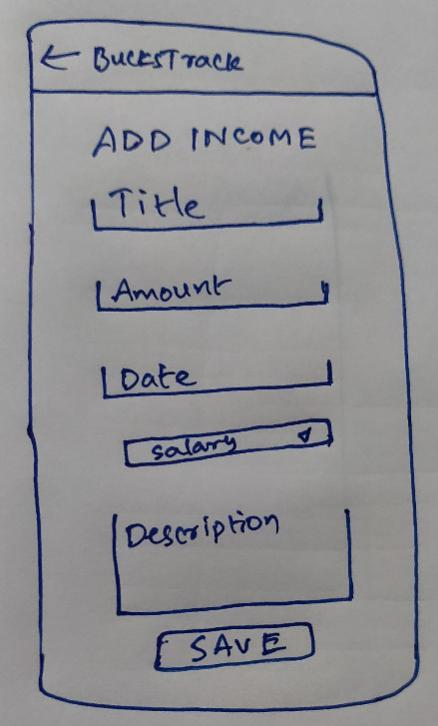 ← BucksTrack
ADD INCOME
Title
Amount
Date
Salary
Description
SAVE